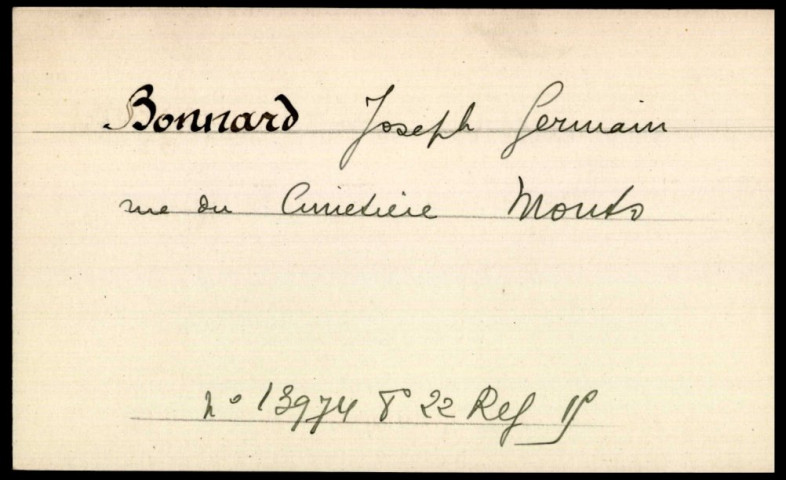 Bonnard Joseph Germain
rue du Cimetière Monts
n° 13974 22 Ref